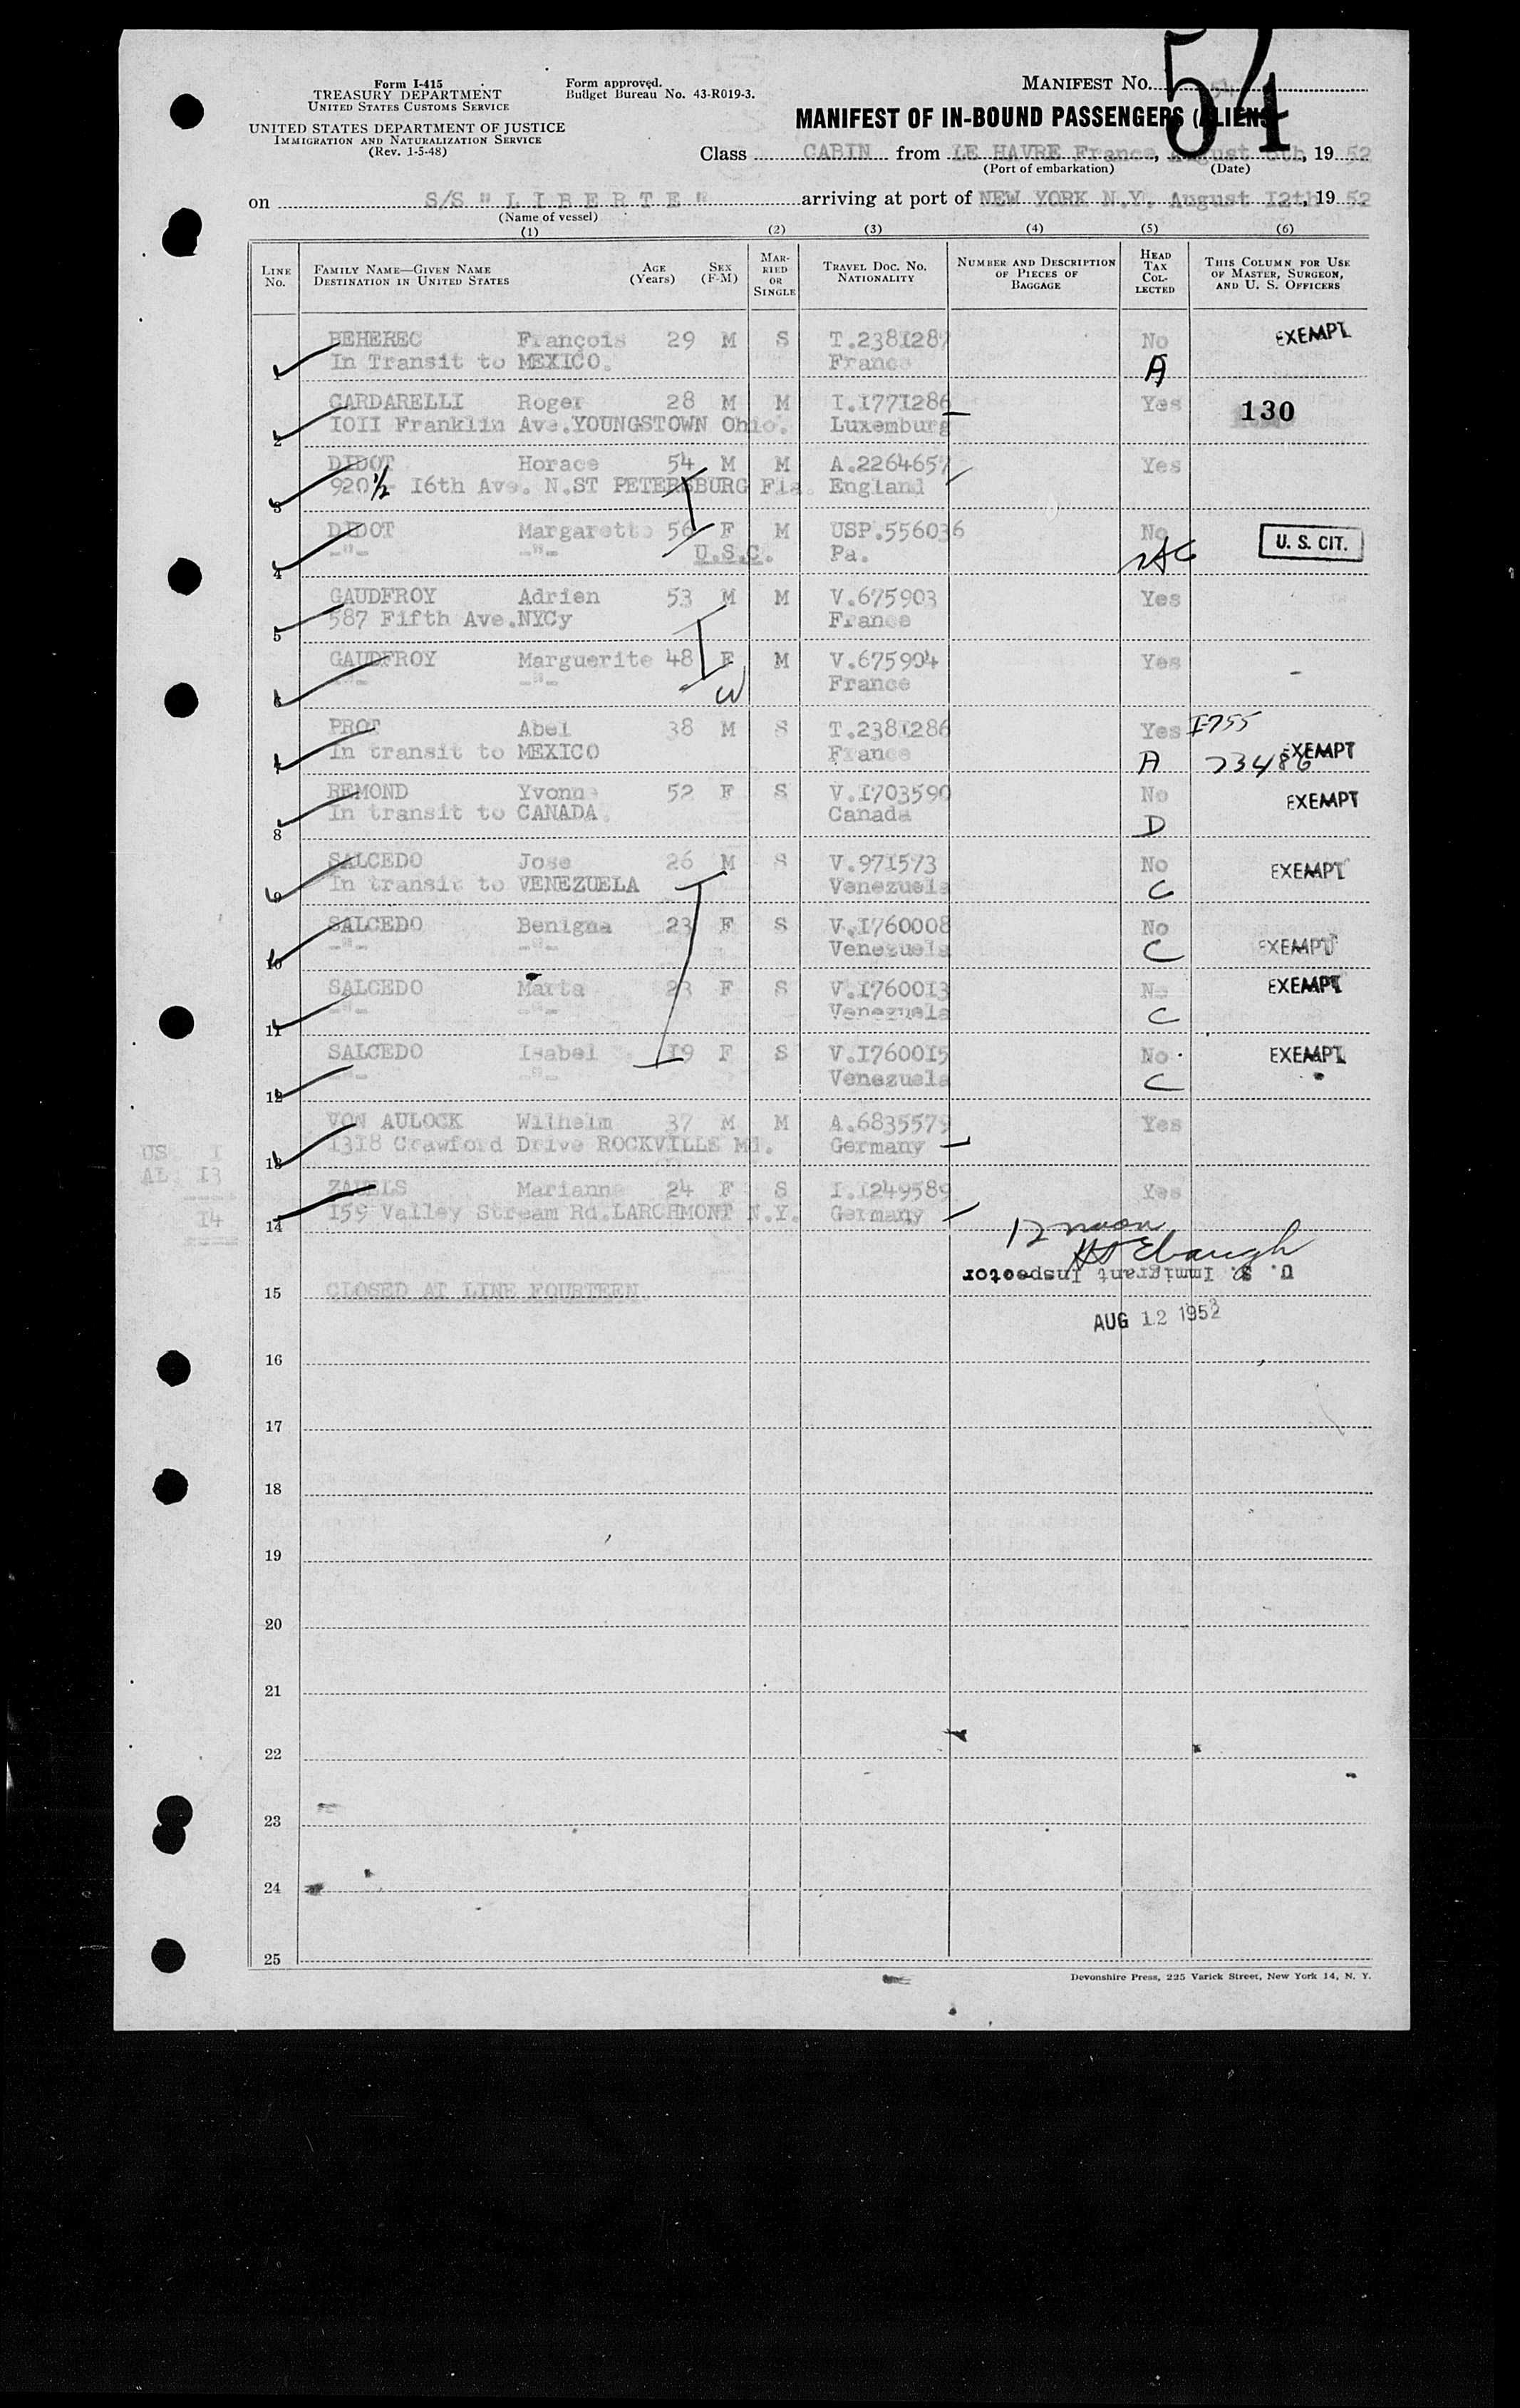 Form I-415
TREASURY DEPARTMENT
UNITED STATES CUSTOMS SERVICE
UNITED STATES DEPARTMENT OF JUSTICE
IMMIGRATION AND NATURALIZATION SERVICE
(Rev. 1-5-48)
Form approved.
Budget Bureau No. 43-R019-3.
MANIFEST No. 54
MANIFEST OF IN-BOUND PASSENGERS (ALIENS)
Class CABIN from LE HAVRE France, August 6th, 19 52
(Port of embarkation) (Date)
on S/S " L I B E R T E " arriving at port of NEW YORK N.Y. August I2th, 19 52
(Name of vessel)
(1) (2) (3) (4) (5) (6)
LINE No. FAMILY NAME—GIVEN NAME DESTINATION IN UNITED STATES AGE (Years) SEX (F-M) MARRIED OR SINGLE TRAVEL DOC. NO. NATIONALITY NUMBER AND DESCRIPTION OF PIECES OF BAGGAGE HEAD TAX COLLECTED THIS COLUMN FOR USE OF MASTER, SURGEON, AND U. S. OFFICERS
BEHEREC François 29 M S T.238I287 No EXEMPT
1 In Transit to MEXICO. France A
CARDARELLI Roger 28 M M I.I77I286 Yes 130
2 IOII Franklin Ave.YOUNGSTOWN Ohio. Luxemburg
DIDOT Horace 54 M M A.2264657 Yes
3 920 1/2 I6th Ave. N.ST PETERSBURG Fla. England
DIDOT Margarette 56 F M USP.556036 No U. S. CIT.
4 -"- -"- U.S.C. Pa.
GAUDFROY Adrien 53 M M V.675903 Yes
5 587 Fifth Ave.NYCy France
GAUDFROY Marguerite 48 F M V.675904 Yes
6 -"- -"- W France
PROT Abel 38 M S T.238I286 Yes I-755
7 In transit to MEXICO France A 73486 EXEMPT
REMOND Yvonne 52 F S V.I703590 No EXEMPT
8 In transit to CANADA. Canada D
SALCEDO Jose 26 M S V.97I573 No EXEMPT
9 In transit to VENEZUELA Venezuela C
SALCEDO Benigna 23 F S V.I760008 No
10 -"- -"- Venezuela C EXEMPT
SALCEDO Marta 23 F S V.I7600I3 No EXEMPT
11 -"- -"- Venezuela C
SALCEDO Isabel I9 F S V.I7600I5 No EXEMPT
12 -"- -"- Venezuela C
VON AULOCK Wilhelm 37 M M A.6835579 Yes
13 I3I8 Crawford Drive ROCKVILLE Md. Germany
US I
AL I3
I4
ZAUELS Marianne 24 F S I.I249589 Yes
14 I59 Valley Stream Rd.LARCHMONT N.Y. Germany
12 noon
Ebaugh
U. S. Immigrant Inspector
15 CLOSED AT LINE FOURTEEN
AUG 12 1952
16
17
18
19
20
21
22
23
24
25
Devonshire Press, 225 Varick Street, New York 14, N. Y.